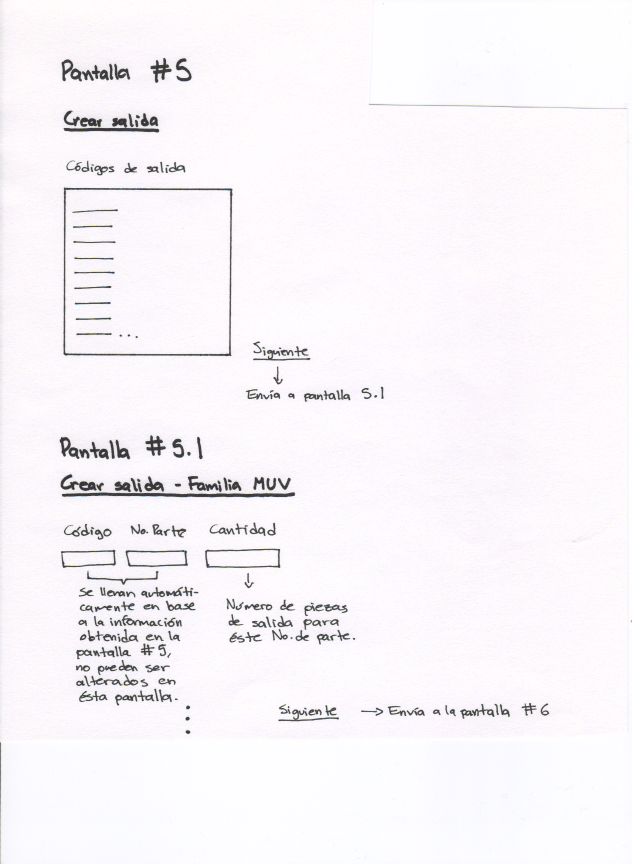 Pantalla #5
Crear salida
Códigos de salida
...
Siguiente
Envía a pantalla 5.1
Pantalla #5.1
Crear salida - Familia MUV
Código No. Parte Cantidad
Se llenan automáti-
camente en base
a la información
obtenida en la
pantalla #5,
no pueden ser
alterados en
ésta pantalla.
Número de piezas
de salida para
éste No. de parte.
Siguiente → Envía a la pantalla #6